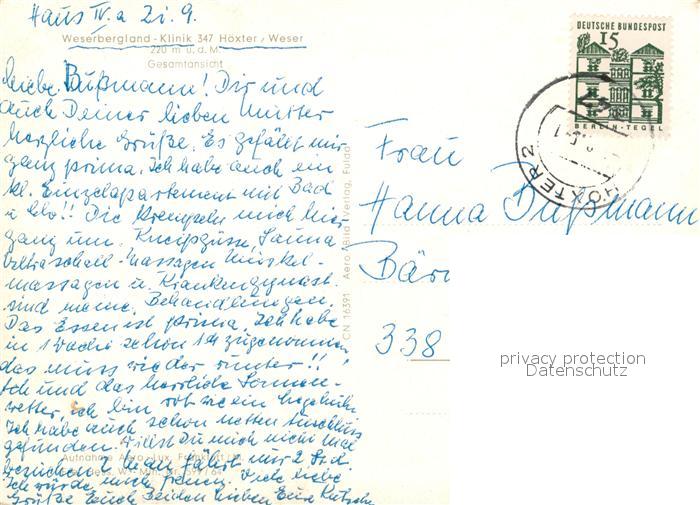 Haus IV.a Zi. 9.
Weserbergland - Klinik 347 Höxter / Weser
220 m ü. d. M.
Gesamtansicht
Liebe Bußmann! Dir und
auch Deiner lieben Mutter
herzliche Grüße. Es gefällt mir
ganz prima. Ich habe auch ein
kl. Einzelapartement mit Bad
u. Clo!! Die krempeln mich hier
ganz um. Kneippgüsse, Sauna
Ultraschall-Massagen Muskel-
massagen u. Krankengymnast.
sind meine Behandlungen.
Das Essen ist prima. Ich habe
in 1 Woche schon zugenommen,
das muss wieder runter!!
und das herrliche Sonnen-
wetter, ich bin rot wie ein
Ich habe auch schon netten Anschluss
gefunden. Willst Du mich nicht mal
besuchen? Man fährt nur 2 Std.
Ich würde mich freuen. Viele liebe
Grüße Euch Beiden lieben Eure
Aufnahme Aero-Lux, Frankfurt/M.
CN 16391 Aero-Bild Verlag, Fulda
DEUTSCHE BUNDESPOST
15
BERLIN-TEGEL
HÖXTER 2
Frau
Hanna Bußmann
Bär
338
privacy protection
Datenschutz